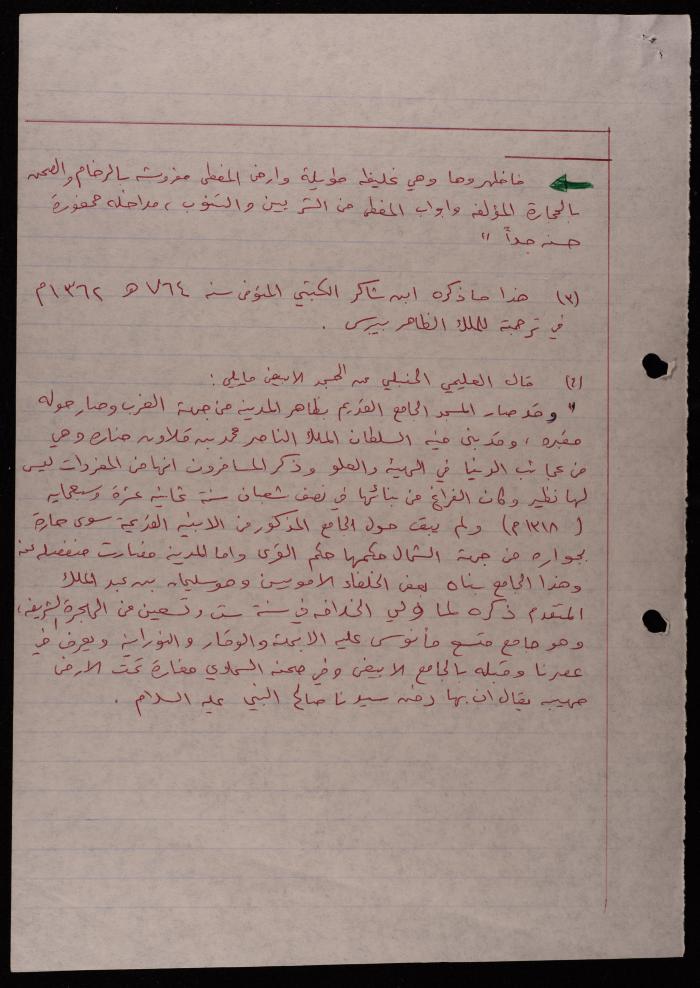 فاظهروها وهي غليظة طويلة وارض المغطى مفروشه بالرخام والصحن
بالحجارة المؤلفه وابواب المغطى من الشربين والسنوب ، مداخله محفورة
حسنه جداً "
(٣) هذا ما ذكره ابن شاكر الكتبي المتوفى سنه ٧٦٤ هـ ١٣٦٢م
في ترجمة للملك الظاهر بيبرس .
(٤) قال العليمي الحنبلي عن المسجد الابيض مايلي :
" وقد صار المسجد الجامع القديم بظاهر المدينه من جهة الغرب وصار حوله
مقبره ، وقد بنى فيه السلطان الملك الناصر محمد بن قلاوون مناره وهي
من عجائب الدنيا في الهيئة والعلو وذكر المسافرون انها من المفردات ليس
لها نظير وكان الفراغ من بنائها في نصف شعبان سنة ثمانية عشرة وسبعمايه
( ١٣١٨م ) ولم يبق حول الجامع المذكور من الابنيه القديمة سوى حارة
بجواره من جهة الشمال حكمها حكم القرى واما المدينه فصارت منفصله عنه
وهذا الجامع بناه بعض الخلفاء الامويين وهو سليمان بن عبد الملك
المتقدم ذكره لما ولي الخلافه في سنة ست وتسعين من الهجرة الشريفه ،
وهو جامع متسع مأنوس عليه الابهة والوقار والنورانيه ويعرف في
عصرنا وقبله بالجامع الابيض وفي صحنه السماوي مغارة تحت الارض
مهيبه يقال ان بها دفن سيدنا صالح النبي عليه السلام .